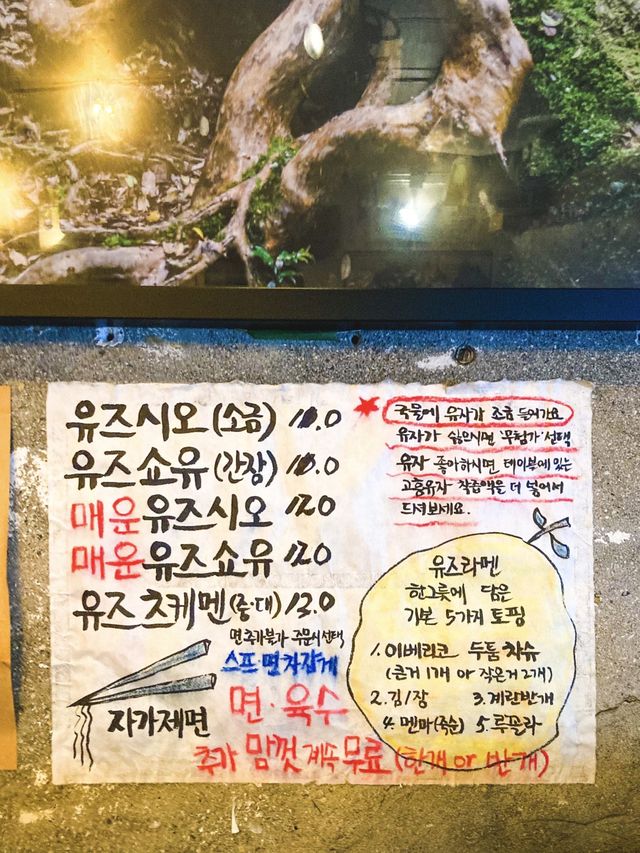 유즈시오(소금) 11.0
유즈쇼유(간장) 11.0
매운유즈시오 12.0
매운유즈쇼유 12.0
유즈츠케멘(중·대) 13.0
면추가불가 주문시선택
스프 면 차갑게
면·육수
자가제면
추가 맘껏 계속 무료 (한개 or 반개)
국물에 유자가 조금 들어가요
유자가 싫으시면 '무첨가' 선택
유자 좋아하시면 테이블에 있는
고흥유자 착즙액을 더 넣어서
드셔보세요.
유즈라멘
한그릇에 담은
기본 5가지 토핑
1. 이베리코 두툼 차슈
(큰거 1개 or 작은거 2개)
2. 김/장 3. 계란반개
4. 멘마(죽순) 5. 루꼴라